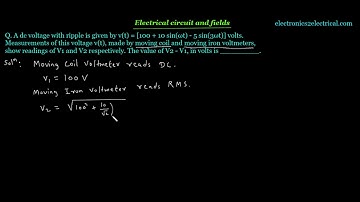 Electrical circuit and fields
electronics2electrical.com
Q. A dc voltage with ripple is given by v(t) = [100 + 10 sin(ωt) - 5 sin(3ωt)] volts.
Measurements of this voltage v(t), made by moving coil and moving iron voltmeters,
show readings of V1 and V2 respectively. The value of V2 - V1, in volts is ________.
Solⁿ: Moving Coil Voltmeter reads DC.
V₁ = 100 V
Moving Iron voltmeter reads RMS.
V₂ = √(100² + (10/√2)